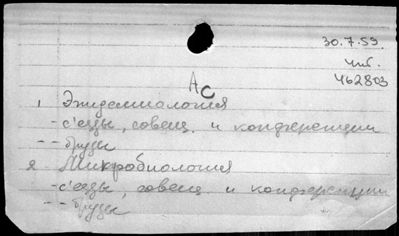 30.7.59.
чит.
462803
AC
1 Эпидемиология
- съезды, совещ. и конференции
- - труды
2 Микробиология
- съезды, совещ. и конференции
- - труды